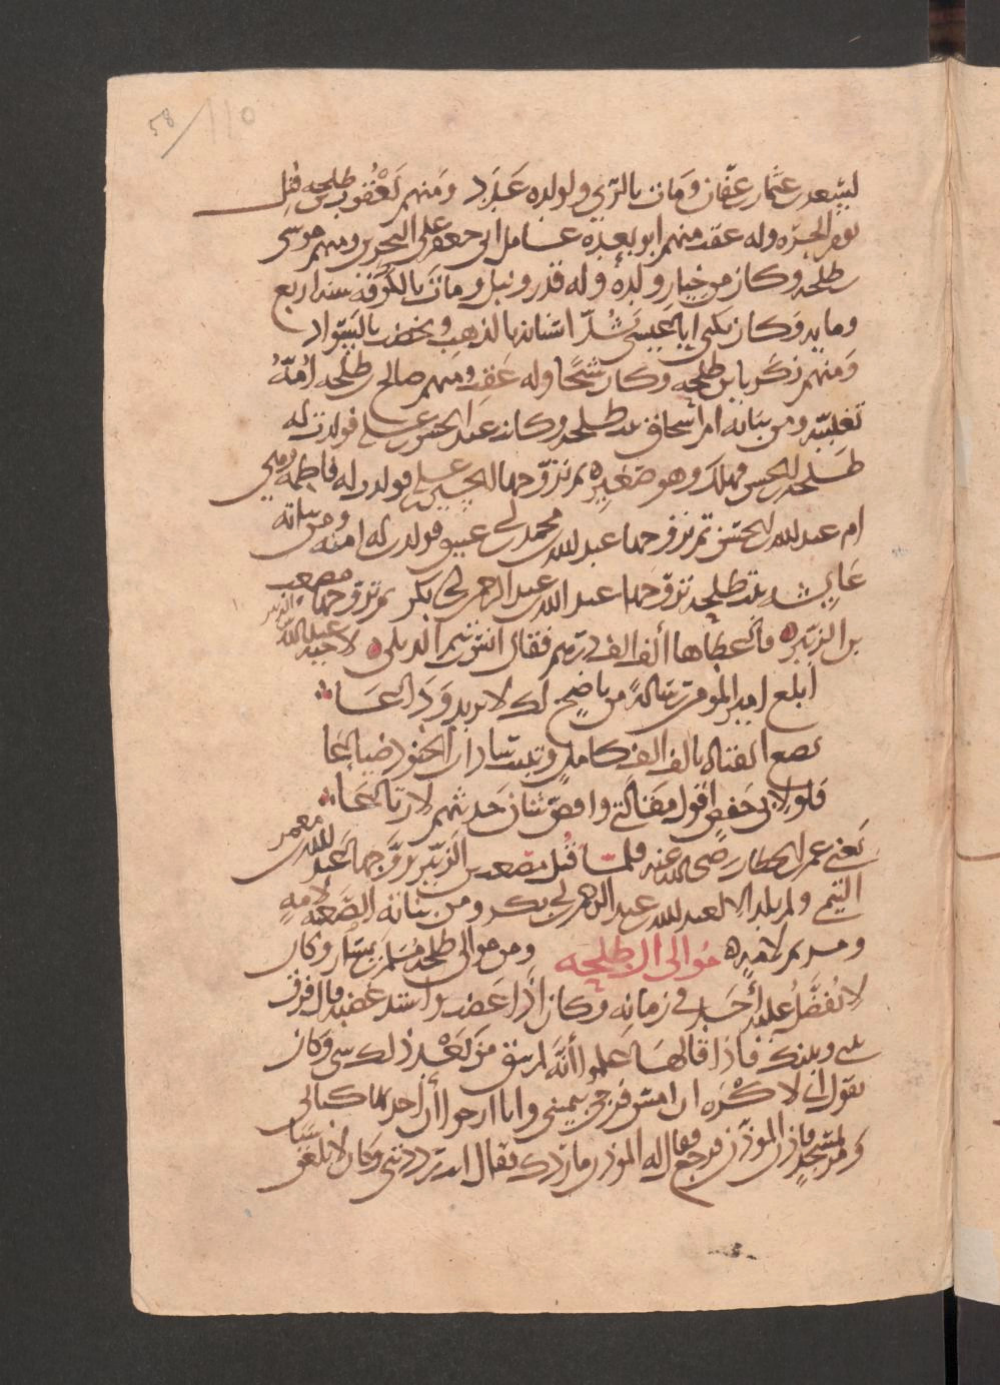 58/110
لسعيد بن عثمان بن عفان ومات بالري ولولده عدد ومنهم يعقوب بن طلحه قتل
يوم الحره وله عقب منهم ابو بعره عامل ابى جعفر على البحرين ومنهم موسى
بن طلحه وكان من خيار ولده وله قدر ونبل ومات بالكوفه سنه اربع
ومايه وكان يكنى ابا عيسى شدّ اسنانه بالذهب ويخضب بالسواد
ومنهم زكريا بن طلحه وكان سخيا وله عقب ومنهم صالح بن طلحه امّه
تغلبيّه ومن بناته ام اسحاق بنت طلحه وكانت عند الحسن بن على فولدت له
طلحه بن الحسن فهلك وهو صغيره ثم تزوجها الحسين بن على فولدت له فاطمه وهي
ام عبد الله بن الحسن ثم تزوجها عبد الله بن محمد بن ابي عتيق فولدت له امنه ومن بناته
عايشه بنت طلحه تزوجها عبد الله بن عبد الرحمن بن ابي بكر ثم تزوجها مصعب
بن الزبيره فاعطاها ألف ألف درهم فقال انس بن زنيم الديلى لاخيه عبد الله بن الزبير
ابلغ امير المومنين رسالةً من ناضحٍ لك لا يريد وداعا
بضع الفتاه بالف الف كامل وتبيت سادات الجنود جياعا
فلو لابى حفص اقول مقالتي واقصّ شان حديثهم لارتاعا
يعنى عمر بن الخطاب رضى الله عنه فلما قُتل مصعب بن الزبير تزوجها عبد الله بن معمر
التيمي ولم تلد الا لعبد الله بن عبد الرحمن بن ابي بكر ومن بناته الصعبه لامه
ومريم لامّ ولده موالى ال طلحه ومن موالى طلحه مسلم بن يسار وكان
لا يُفضَّلُ عليه أحَد فى زمانه وكان اذا غضب واشتد غضبه قال فرق
بيني وبينك فاذا قالها علموا أنه لم يبق من بعد ذلك شى وكان
يقول اني لاكره ان امسّ فرجي بيميني وانا ارجوا أن اخذ بها كتابى
ومر بمسجد فاذن الموذن فرجع فقال له الموذن ما ردّك فقال انت رددتنى وكان لا يلعن شيا